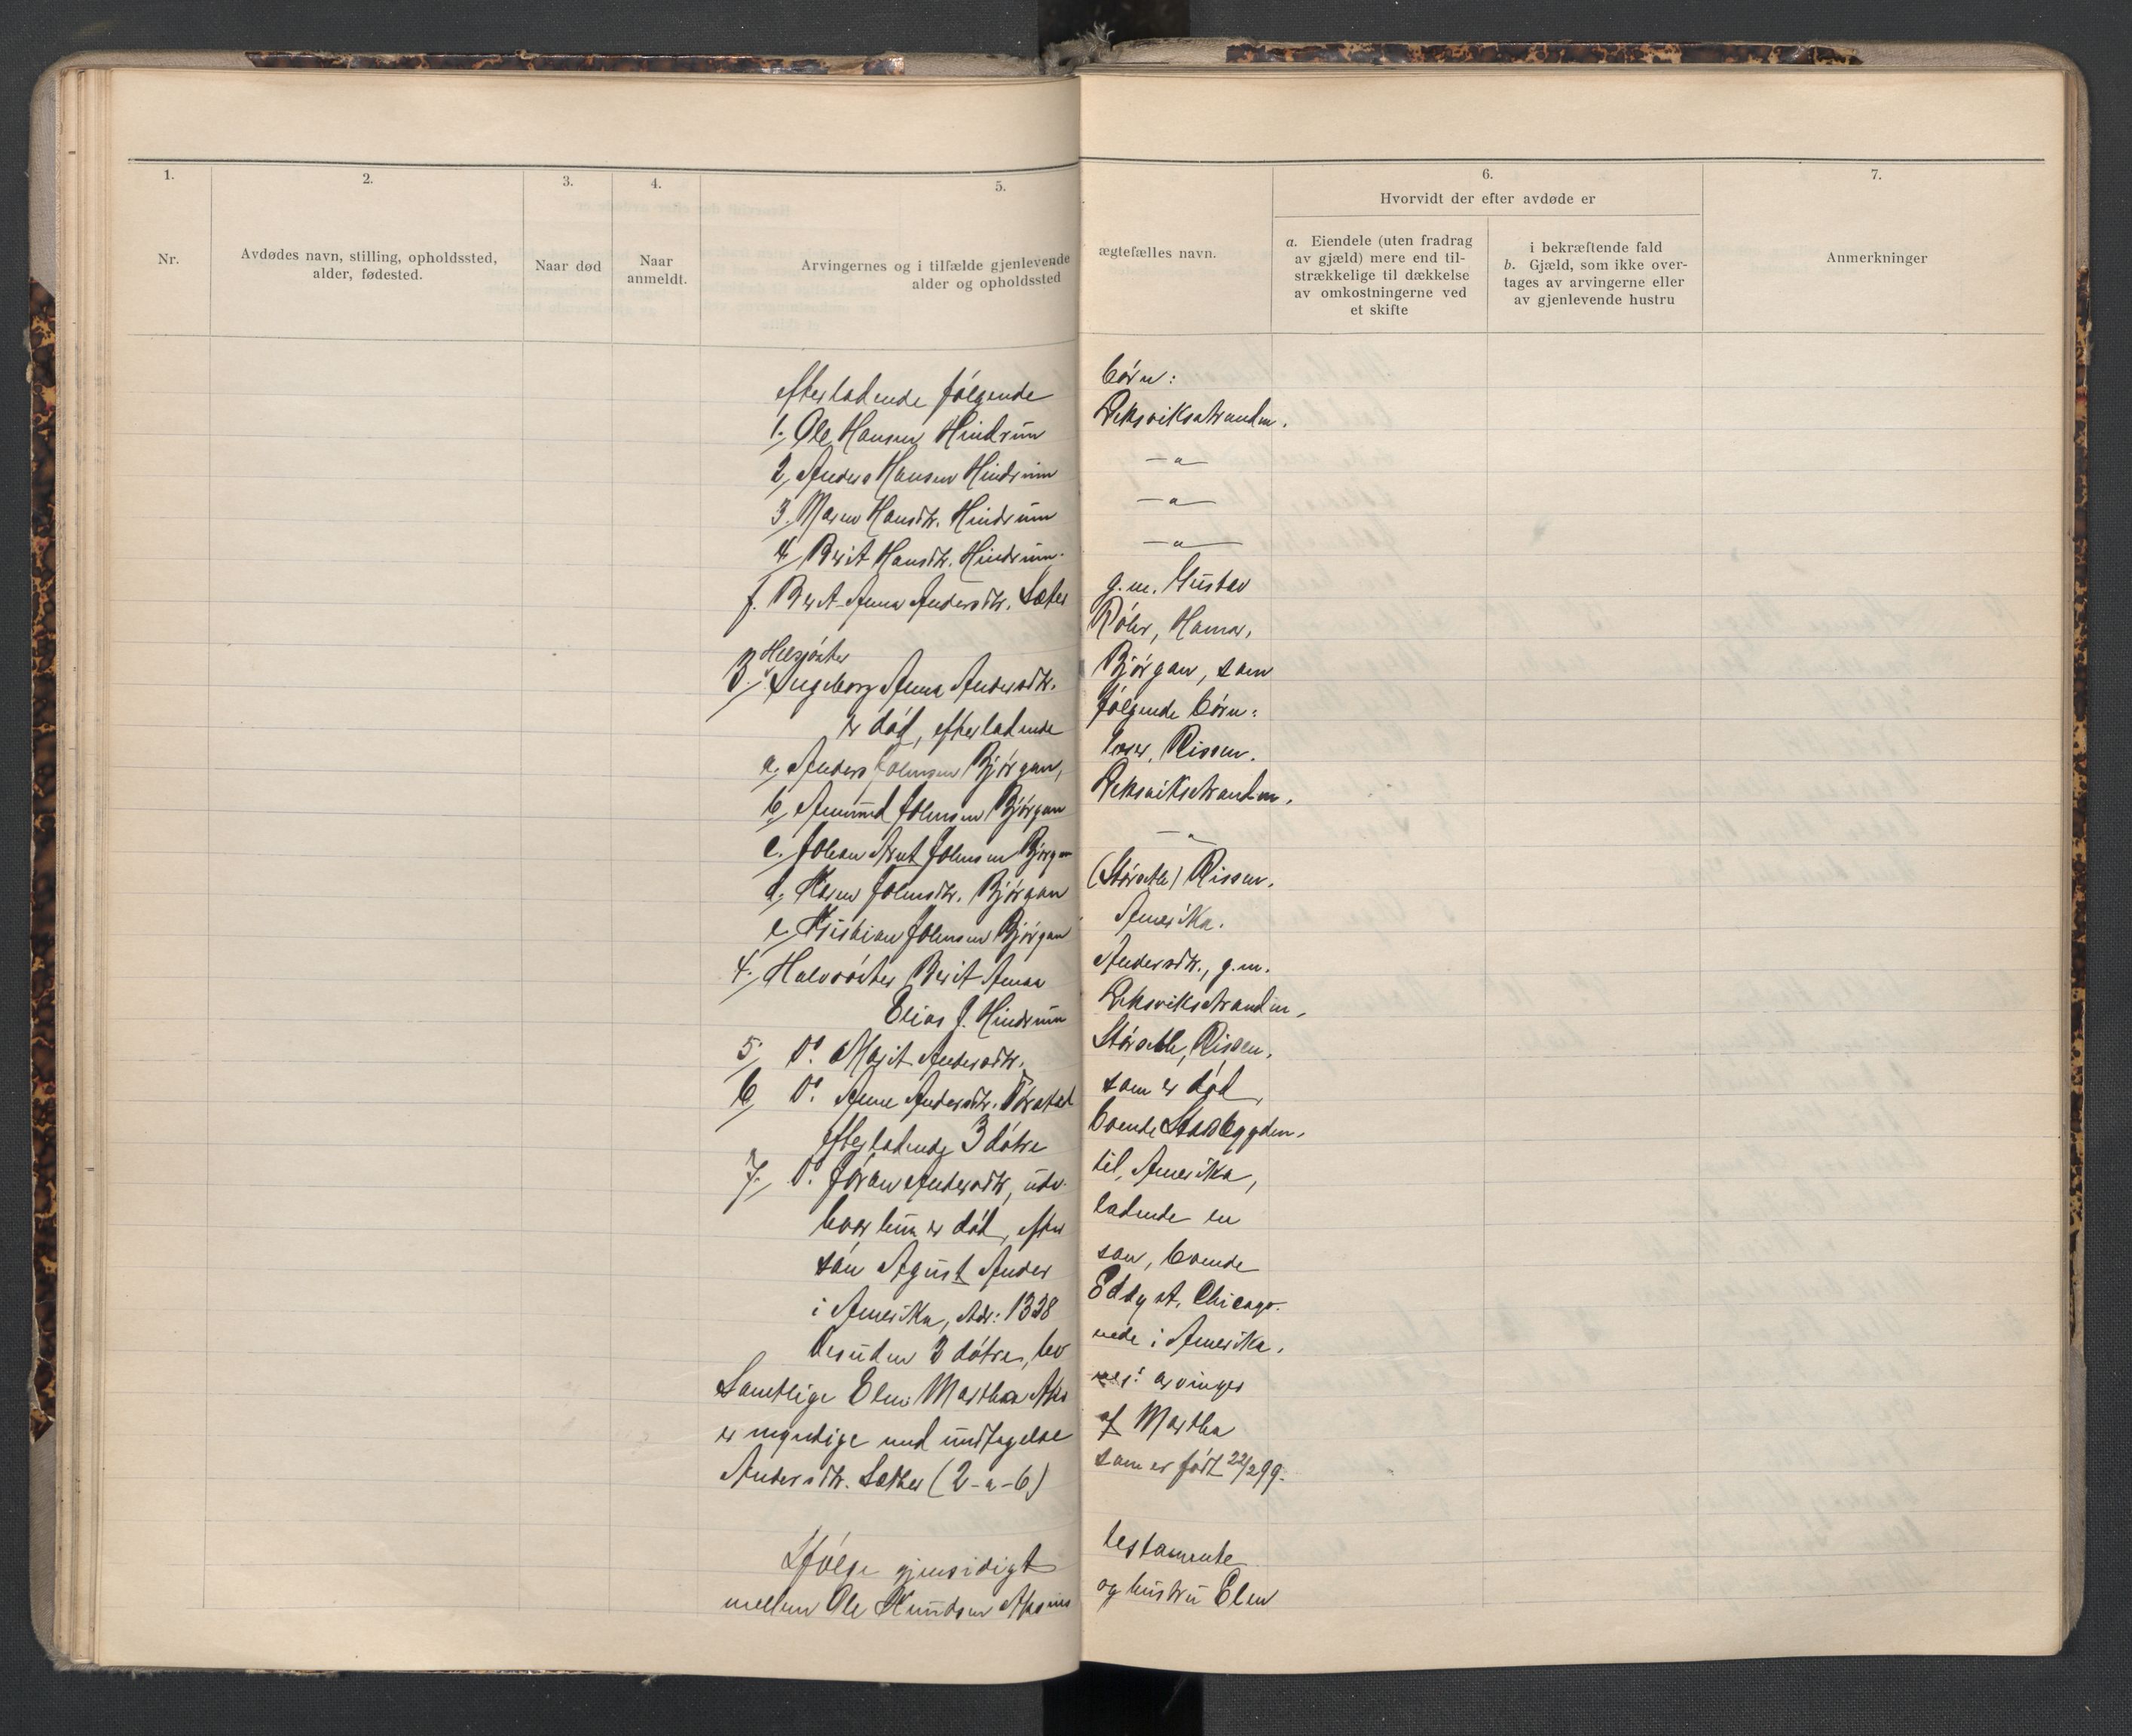 1.
2.
3.
4.
5.
6.
7.
Nr.
Avdødes navn, stilling, opholdssted,
alder, fødested.
Naar død
Naar
anmeldt.
Arvingernes og i tilfælde gjenlevende ægtefælles navn.
alder og opholdssted
Hvorvidt der efter avdøde er
a. Eiendele (uten fradrag
av gjæld) mere end til-
strækkelige til dækkelse
av omkostningerne ved
et skifte
i bekræftende fald
b. Gjæld, som ikke over-
tages av arvingerne eller
av gjenlevende hustru
Anmerkninger
efterladende følgende børn:
1. Ole Hansen Hindrum Leksvikstranden.
2, Anders Hansen Hindrum —"—
3. Maren Hansdtr. Hindrum —"—
4, Berit Hansdtr. Hindrum. —"—
f. Berit Anna Andersdtr. Sæter g.m. Gustav
Röhr, Hamar,
Helsøster
3. Ingeborg Anna Andersdtr. Bjørgan, som
er død, efterladende følgende børn:
a, Anders Johnsen Bjørgan, Rissen.
b, Amund Johnsen Bjørgan Leksvikstranden.
c. Johan Arnt Johnsen Bjørgan —"—
d, Karen Johnsdtr. Bjørgan (Størseth) Rissen.
e, Kristian Johnsen Bjørgan Amerika.
4, Halvsøster Berit Anna Andersdtr., g.m.
Elias J. Hindrum Leksvikstranden,
5, Do. Marit Andersdtr. Størseth, Rissen.
6, Do. Anne Andersdtr. som er død,
efterladende 3 døtre boende Stadsbygden.
7, Do. Jøran Andersdtr, udv. til Amerika,
hvor hun er død, efterladende en
søn Agust Anderson, boende
i Amerika, Adr: 1328 Eddy st. Chicago.
Desuden 3 døtre, boende i Amerika.
Samtlige Elen Martha arvinger
er myndige med undtagelse af Martha
Andersdtr. Sæther (2-a-6) som er født 22/2 99.
Ifølge gjensidigt testamente
mellem Ole Knudsen og hustru Elen